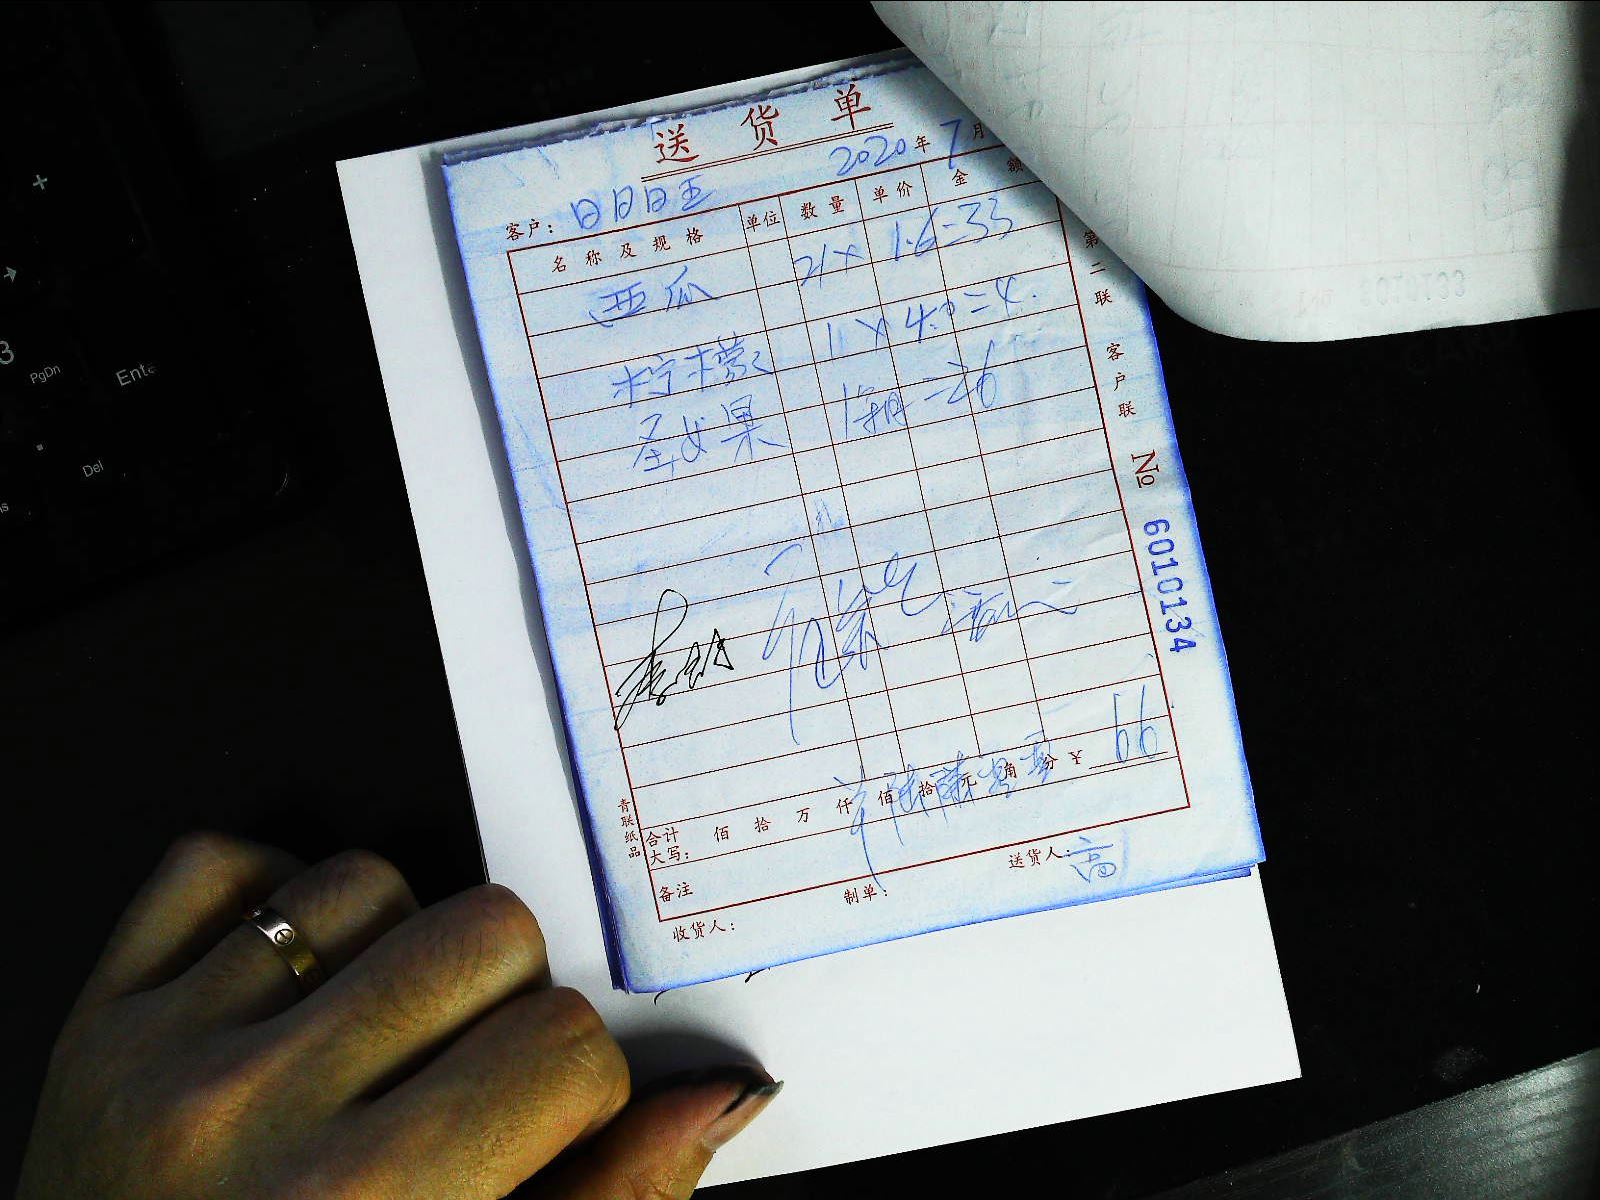 送货单
2020年7月
客户：日日日王
名称及规格 单位 数量 单价 金额
西瓜 21 x 1.6=33
柠檬 11 x 4.0=4.
圣女果 =26
合计大写： 佰 拾 万 仟 佰 拾 元 角 分 ￥ 66
备注
收货人： 制单： 送货人：高
青联纸品
第二联 客户联
№ 6010134
+
3
PgDn
Ente
.
Del